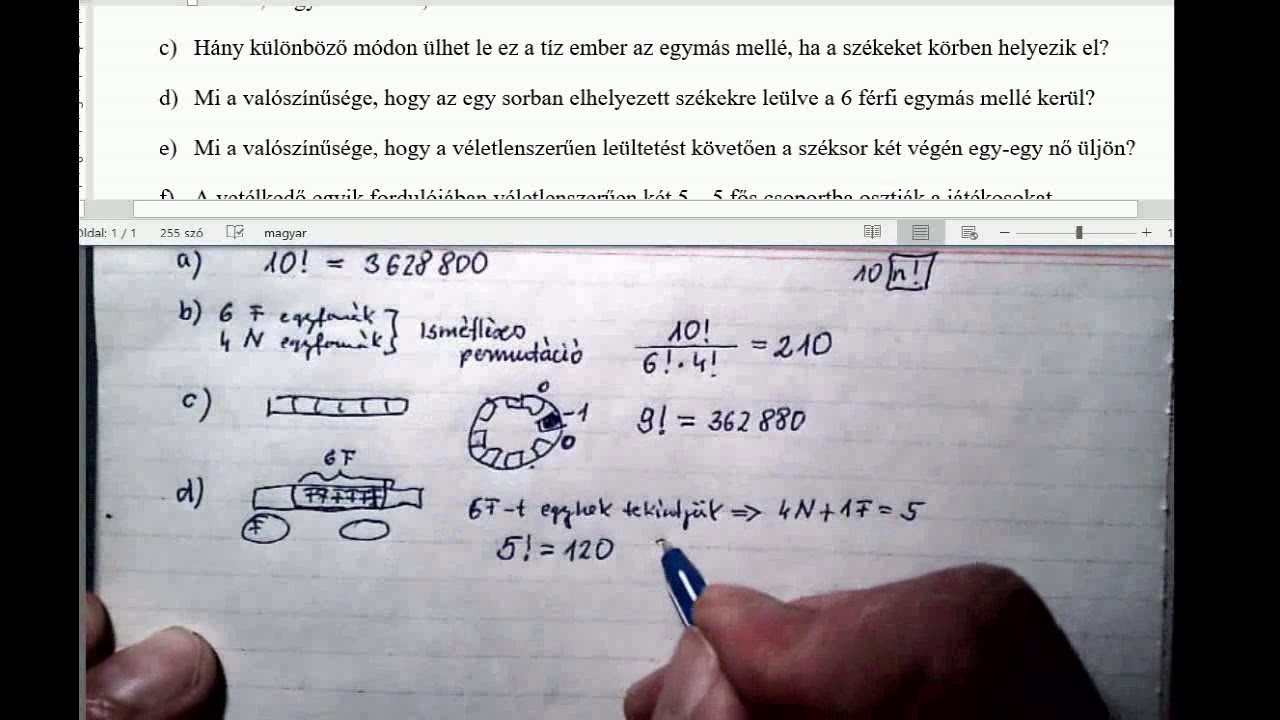 c) Hány különböző módon ülhet le ez a tíz ember az egymás mellé, ha a székeket körben helyezik el?
d) Mi a valószínűsége, hogy az egy sorban elhelyezett székekre leülve a 6 férfi egymás mellé kerül?
e) Mi a valószínűsége, hogy a véletlenszerűen leültetést követően a széksor két végén egy-egy nő üljön?
f) A vetélkedő egyik fordulójában véletlenszerűen két 5 – 5 fős csoportba osztják a játékosokat
Oldal: 1 / 1 255 szó magyar
a) 10! = 3628800 10 n!
b) 6 F egyformák
4 N egyformák
Ismétléses
permutáció
10! / 6! · 4! = 210
c) 0 -1 0 9! = 362 880
6 F
d) FFFFFF
F
6F-t egynek tekintjük ⇒ 4N + 1F = 5
5! = 120